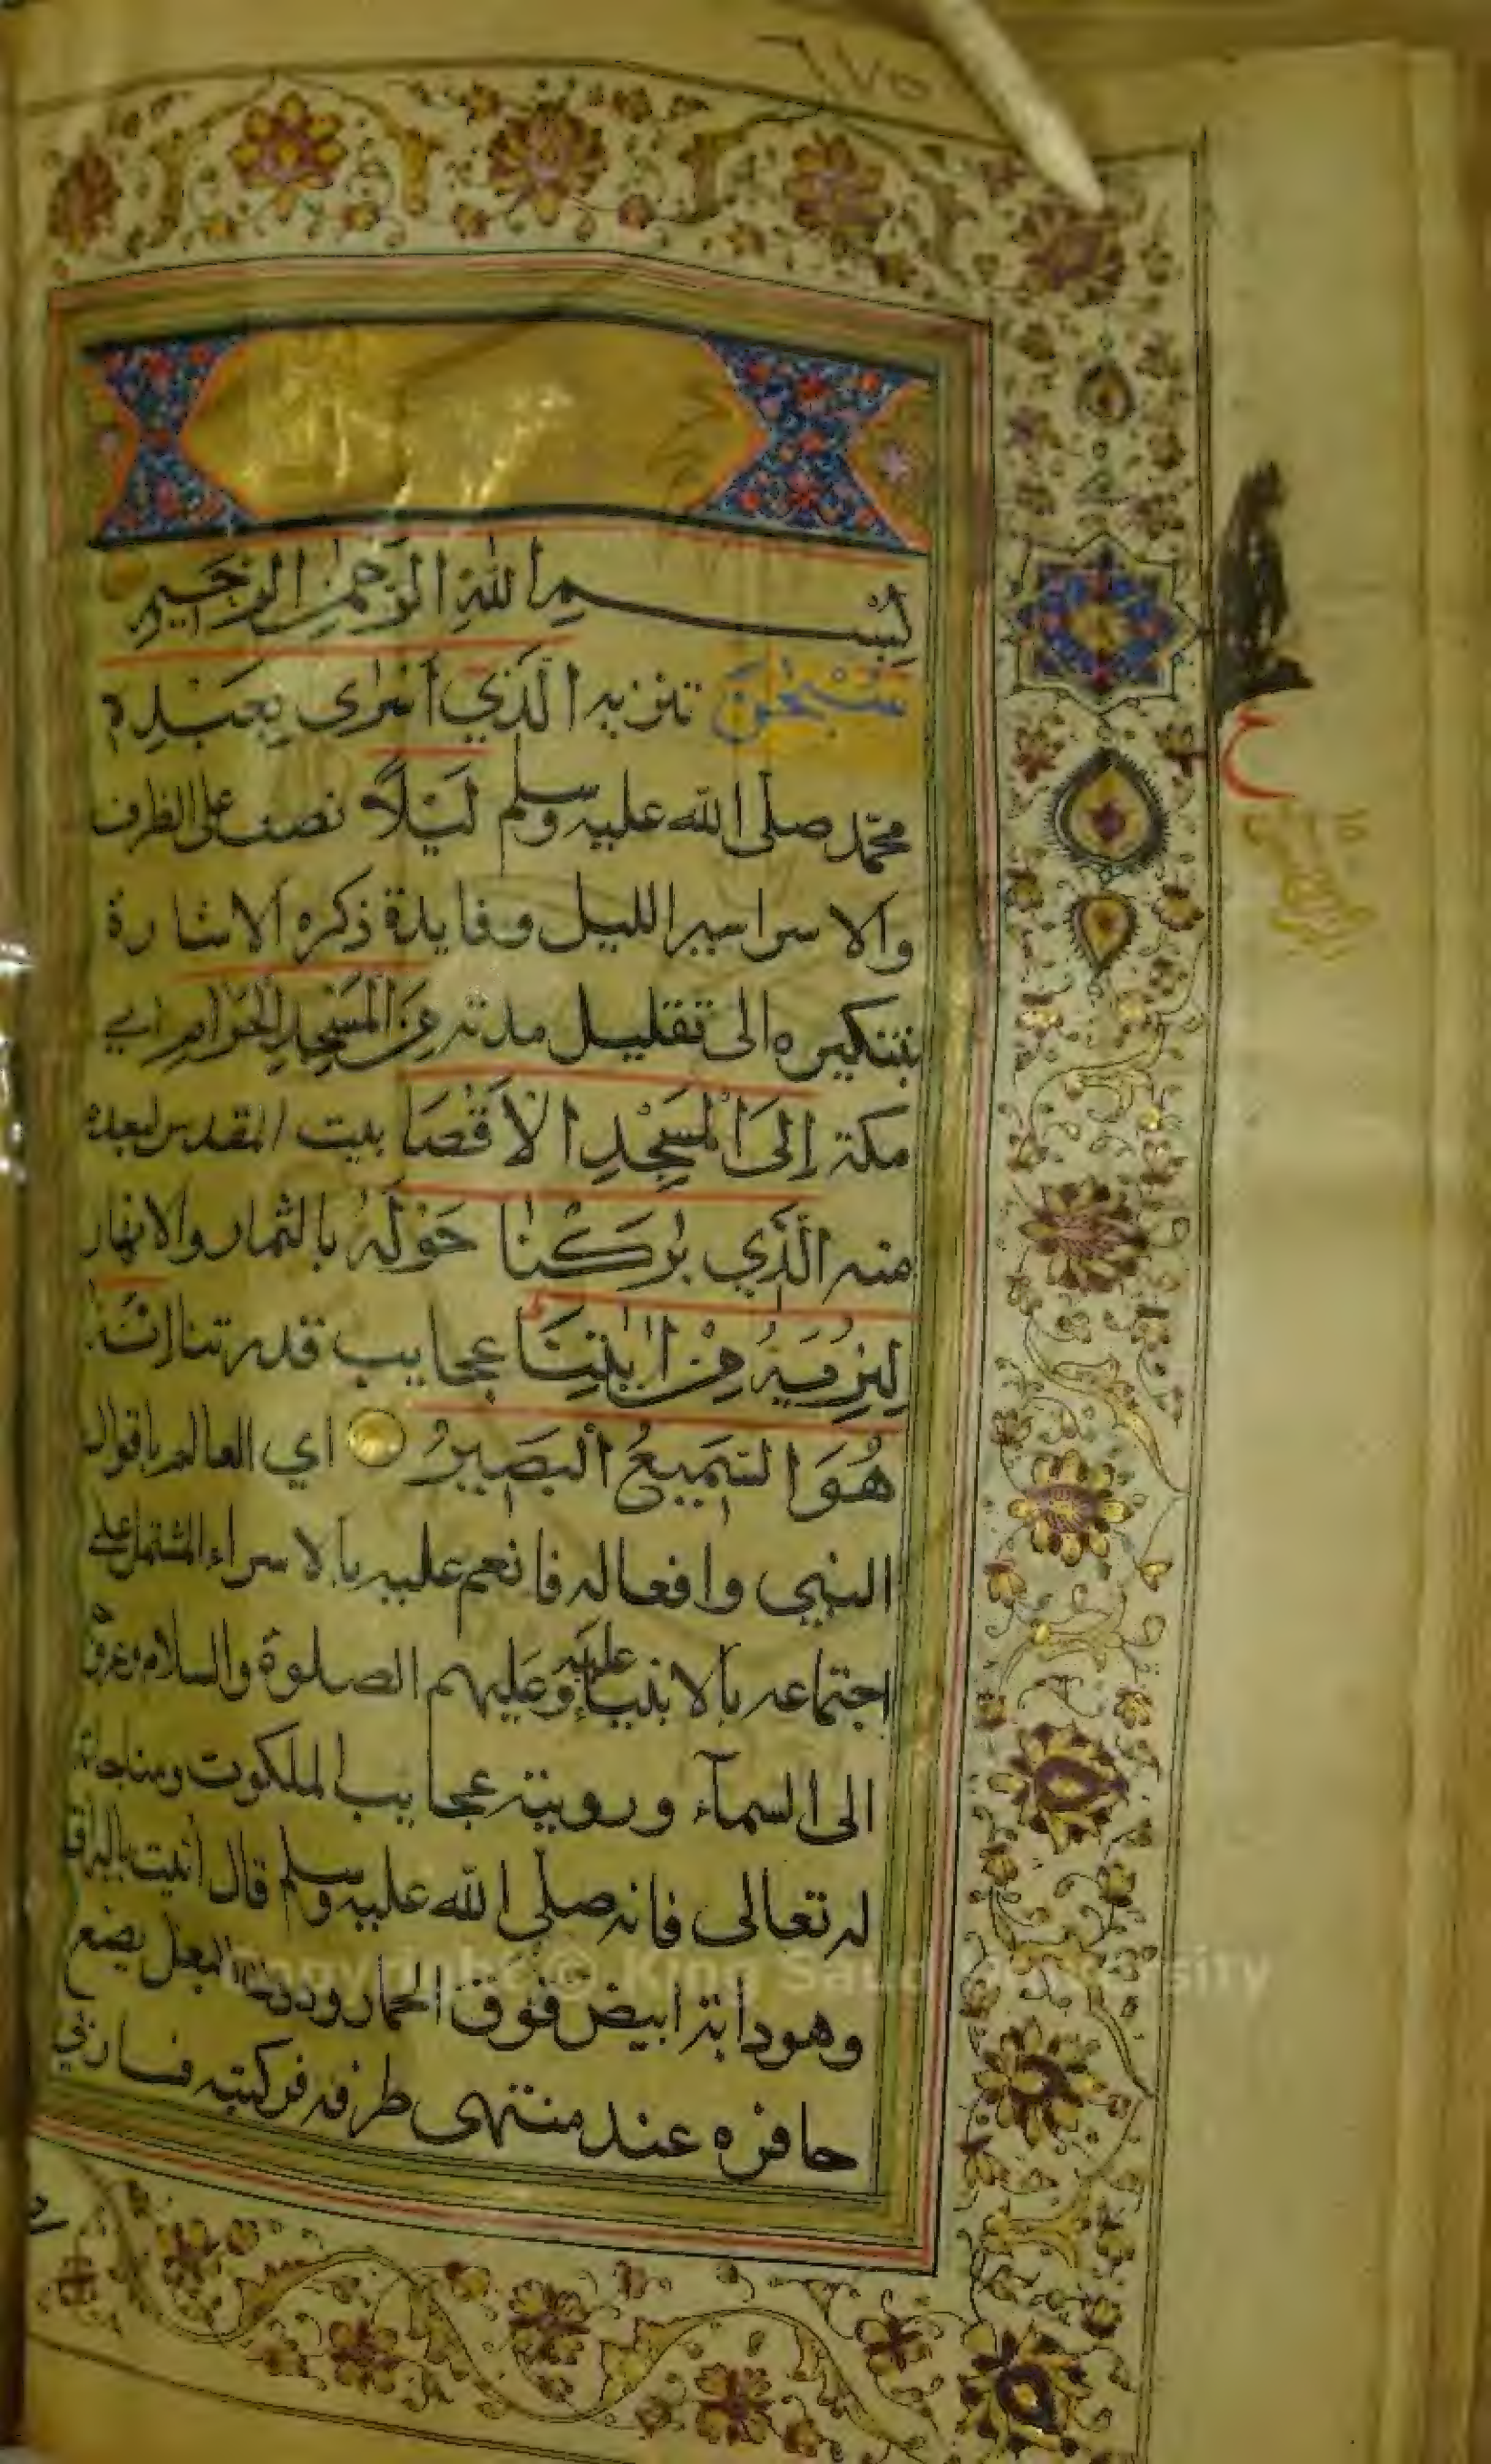 ٦٧٥
بِسْمِ اللّٰهِ الرَّحْمٰنِ الرَّحِيمِ
سُبْحٰنَ تنزيه الَّذِي أَسْرٰى بِعَبْدِهِ
محمّد صلّى الله عليه وسلم لَيْلًا نصب على الظرف
والاسرا سير الليل وفايدة ذكره الاشارة
بتنكيره الى تقليل مدته مِنَ الْمَسْجِدِ الْحَرَامِ اي
مكة إِلَى الْمَسْجِدِ الْأَقْصَا بيت المقدس لبعده
منه الَّذِي بٰرَكْنَا حَوْلَهُ بالثمار والانهار
لِنُرِيَهُ مِنْ اٰيٰتِنَا عجايب قدرتنا إِنَّهُ
هُوَ السَّمِيعُ الْبَصِيرُ اي العالم باقوال
النبي وافعاله فانعم عليه بالاسراء المشتمل على
اجتماعه بالانبياء عليه وعليهم الصلوة والسلام وعروجه
الى السمآء وروية عجايب الملكوت ومناجاته
له تعالى فانه صلّى الله عليه وسلم قال أتيت بالبراق
وهو دابة ابيض فوق الحمار ودون البغل يضع
حافره عند منتهى طرفه فركبته فسار بي
ح
Copyright © King Saud University